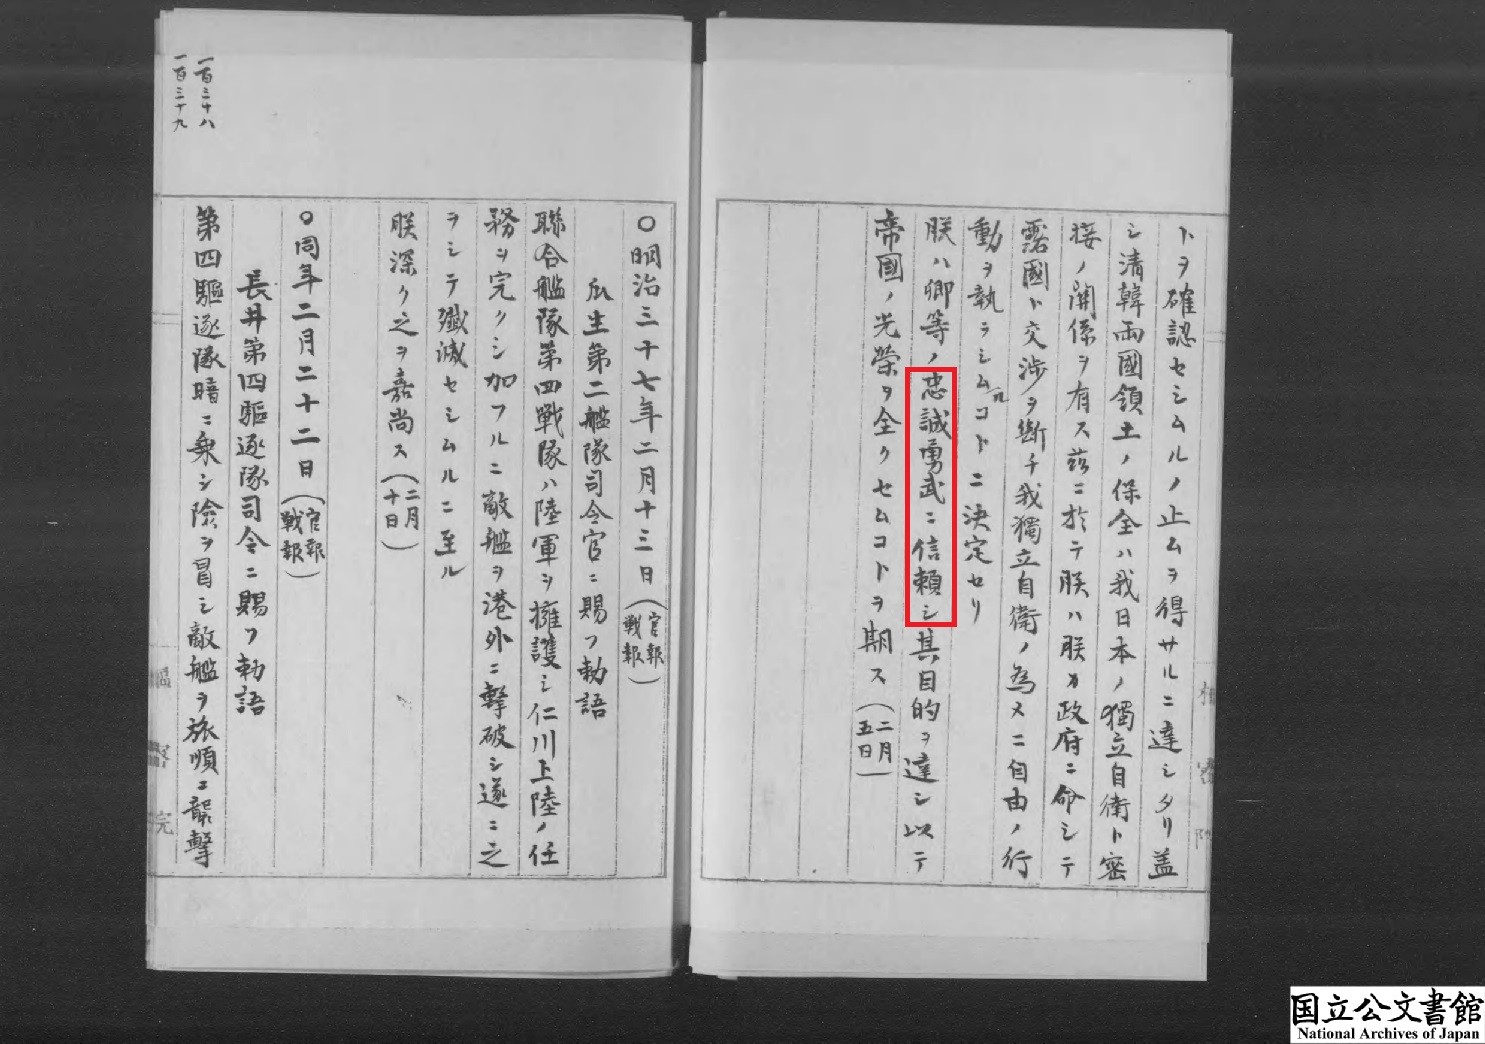 トヲ確認セシムルノ止ムヲ得サルニ達シタリ蓋
シ清韓両國領土ノ保全ハ我日本ノ獨立自衛ト密
接ノ関係ヲ有ス茲ニ於テ朕ハ朕カ政府ニ命シテ
露國ト交渉ヲ断チ我獨立自衛ノ為メニ自由ノ行
動ヲ執ラシムルコトニ決定セリ
朕ハ卿等ノ忠誠勇武ニ信頼シ其目的ヲ達シ以テ
帝國ノ光榮ヲ全クセムコトヲ期ス(二月五日)
一百三十八
一百三十九
〇明治三十七年二月十三日(官報戦報)
瓜生第二艦隊司令官ニ賜フ勅語
聯合艦隊第四戰隊ハ陸軍ヲ擁護シ仁川上陸ノ任
務ヲ完クシ加フルニ敵艦ヲ港外ニ撃破シ遂ニ之
ヲシテ殲滅セシムルニ至ル
朕深ク之ヲ嘉尚ス(二月十日)
〇同年二月二十二日(官報戦報)
長井第四驅逐隊司令ニ賜フ勅語
第四驅逐隊暗ニ乗シ險ヲ冒シ敵艦ヲ旅順ニ襲撃
国立公文書館
National Archives of Japan